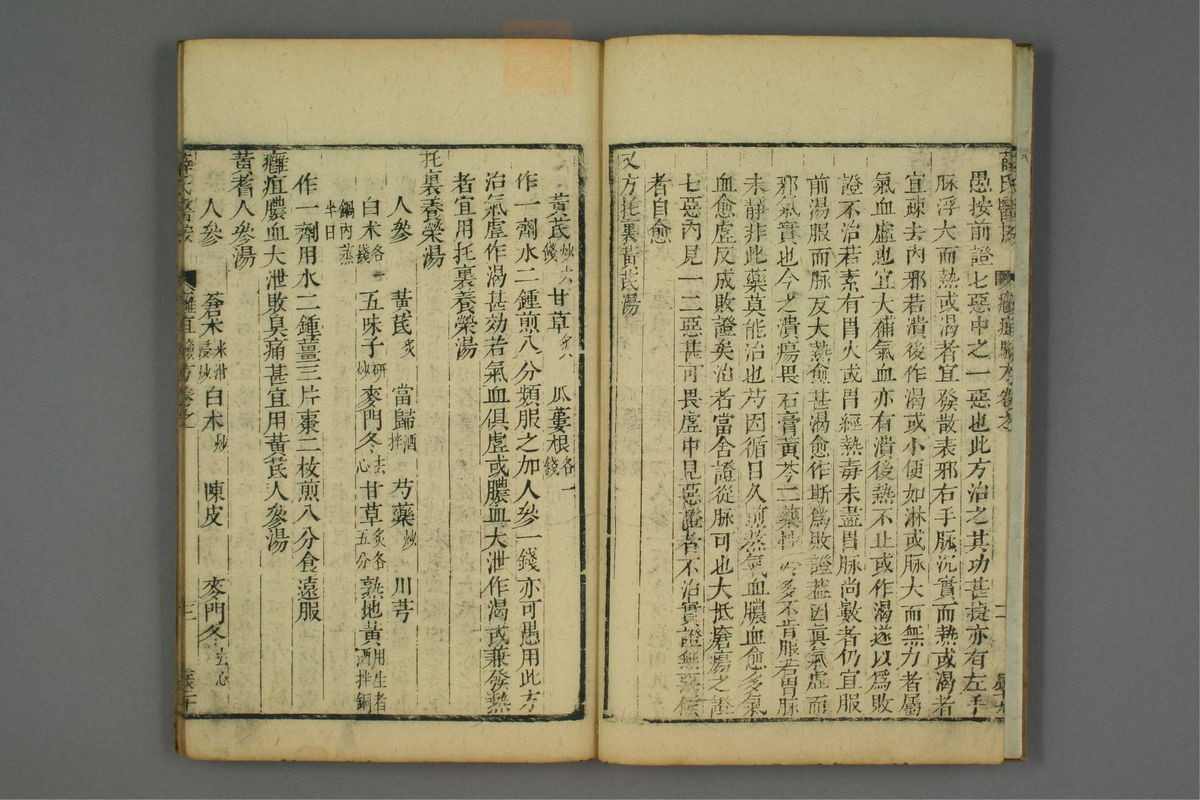 愚按前證七惡中之一惡也此方治之其功甚捷亦有左手
脉浮大而熱或渴者宜發散表邪右手脉沉實而熱或渴者
宜疎去內邪若潰後作渴或小便如淋或脉大而無力者屬
氣血虛也宜大補氣血亦有潰後熱不止或作渴遂以爲敗
證不治若素有胃火或胃經熱毒未盡胃脉尚數者仍宜服
前湯服而脉反大熱愈甚渴愈作斯爲敗證葢因眞氣虛而
邪氣實也今之潰瘍畏石膏黃芩二藥性冷多不肯服若胃脉
未靜非此藥莫能治也芍因循日久煎熬氣血膿血愈多氣
血愈虛反成敗證矣治者當舍證從脉可也大抵瘡瘍之證
七惡內見一二惡甚可畏虛中見惡證者不治實證無惡候
者自愈
又方托裏黃茋湯
黃茋炒六錢 甘草炙六 瓜蔞根各一錢
作一劑水二鍾煎八分頻服之加人參一錢亦可愚用此方
治氣虛作渴甚効若氣血俱虛或膿血大泄作渴或兼發熱
者宜用托裏養榮湯
托裏養榮湯
人參 黃茋炙 當歸酒拌 芍藥炒 川芎
白术各一錢 五味子研炒 麥門冬去心 甘草炙各五分 熟地黃用生者酒拌銅
鍋內蒸半日
作一劑用水二鍾薑三片棗二枚煎八分食遠服
癰疽膿血大泄敗臭痛甚宜用黃茋人參湯
黃耆人參湯
人參 蒼术米泔浸炒 白术炒 陳皮 麥門冬去心